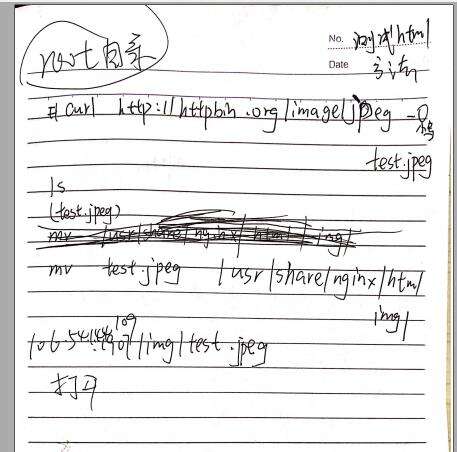 No. 测试html
Date 方法
root目录
# curl http://httpbin.org/image/jpeg -O
test.jpeg
ls
(test.jpeg)
mv /usr/share/nginx/html/img/
mv test.jpeg /usr/share/nginx/html/
img/
/img/test.jpeg
打开